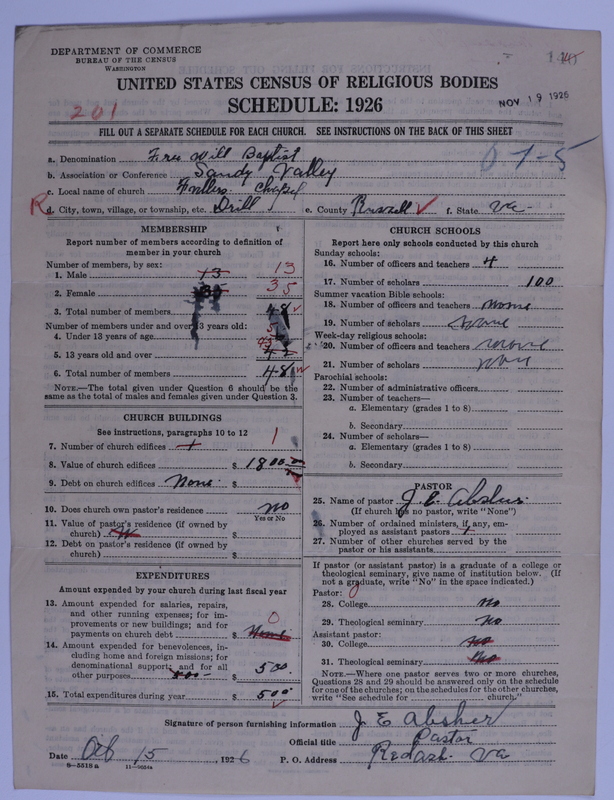 DEPARTMENT OF COMMERCE
BUREAU OF THE CENSUS
WASHINGTON
UNITED STATES CENSUS OF RELIGIOUS BODIES
SCHEDULE: 1926
NOV 19 1926
201
FILL OUT A SEPARATE SCHEDULE FOR EACH CHURCH. SEE INSTRUCTIONS ON THE BACK OF THIS SHEET
a. Denomination Free Will Baptist
b. Association or Conference Sandy Valley
c. Local name of church Chapel
R d. City, town, village, or township, etc. Drill e. County Russell f. State Va.
MEMBERSHIP
Report number of members according to definition of member in your church
Number of members by sex:
1. Male 13 13
2. Female 35
3. Total number of members 48
Number of members under and over 13 years old:
4. Under 13 years of age 5
5. 13 years old and over 43
6. Total number of members 48
NOTE.—The total given under Question 6 should be the same as the total of males and females given under Question 3.
CHURCH BUILDINGS
See instructions, paragraphs 10 to 12
7. Number of church edifices 1 1
8. Value of church edifices $ 1800.
9. Debt on church edifices None $
10. Does church own pastor's residence no
Yes or No
11. Value of pastor's residence (if owned by church) $
12. Debt on pastor's residence (if owned by church) $
EXPENDITURES
Amount expended by your church during last fiscal year
13. Amount expended for salaries, repairs, and other running expenses; for improvements or new buildings; and for payments on church debt $ None 0
14. Amount expended for benevolences, including home and foreign missions; for denominational support; and for all other purposes $ 500.
15. Total expenditures during year $ 500
CHURCH SCHOOLS
Report here only schools conducted by this church
Sunday schools:
16. Number of officers and teachers 4
17. Number of scholars 100
Summer vacation Bible schools:
18. Number of officers and teachers none
19. Number of scholars none
Week-day religious schools:
20. Number of officers and teachers none
21. Number of scholars none
Parochial schools:
22. Number of administrative officers
23. Number of teachers—
a. Elementary (grades 1 to 8)
b. Secondary
24. Number of scholars—
a. Elementary (grades 1 to 8)
b. Secondary
PASTOR
25. Name of pastor J. E. Absher
(If church has no pastor, write "None")
26. Number of ordained ministers, if any, employed as assistant pastors 1
27. Number of other churches served by the pastor or his assistants
If pastor (or assistant pastor) is a graduate of a college or theological seminary, give name of institution below. (If not a graduate, write "No" in the space indicated.)
Pastor:
28. College No
29. Theological seminary No
Assistant pastor:
30. College No
31. Theological seminary No
NOTE.—Where one pastor serves two or more churches, Questions 28 and 29 should be answered only on the schedule for one of the churches; on the schedules for the other churches, write "See schedule for church."
Signature of person furnishing information J E Absher
Official title Pastor
Date 15, 1926 P. O. Address Redash Va
8-5518a